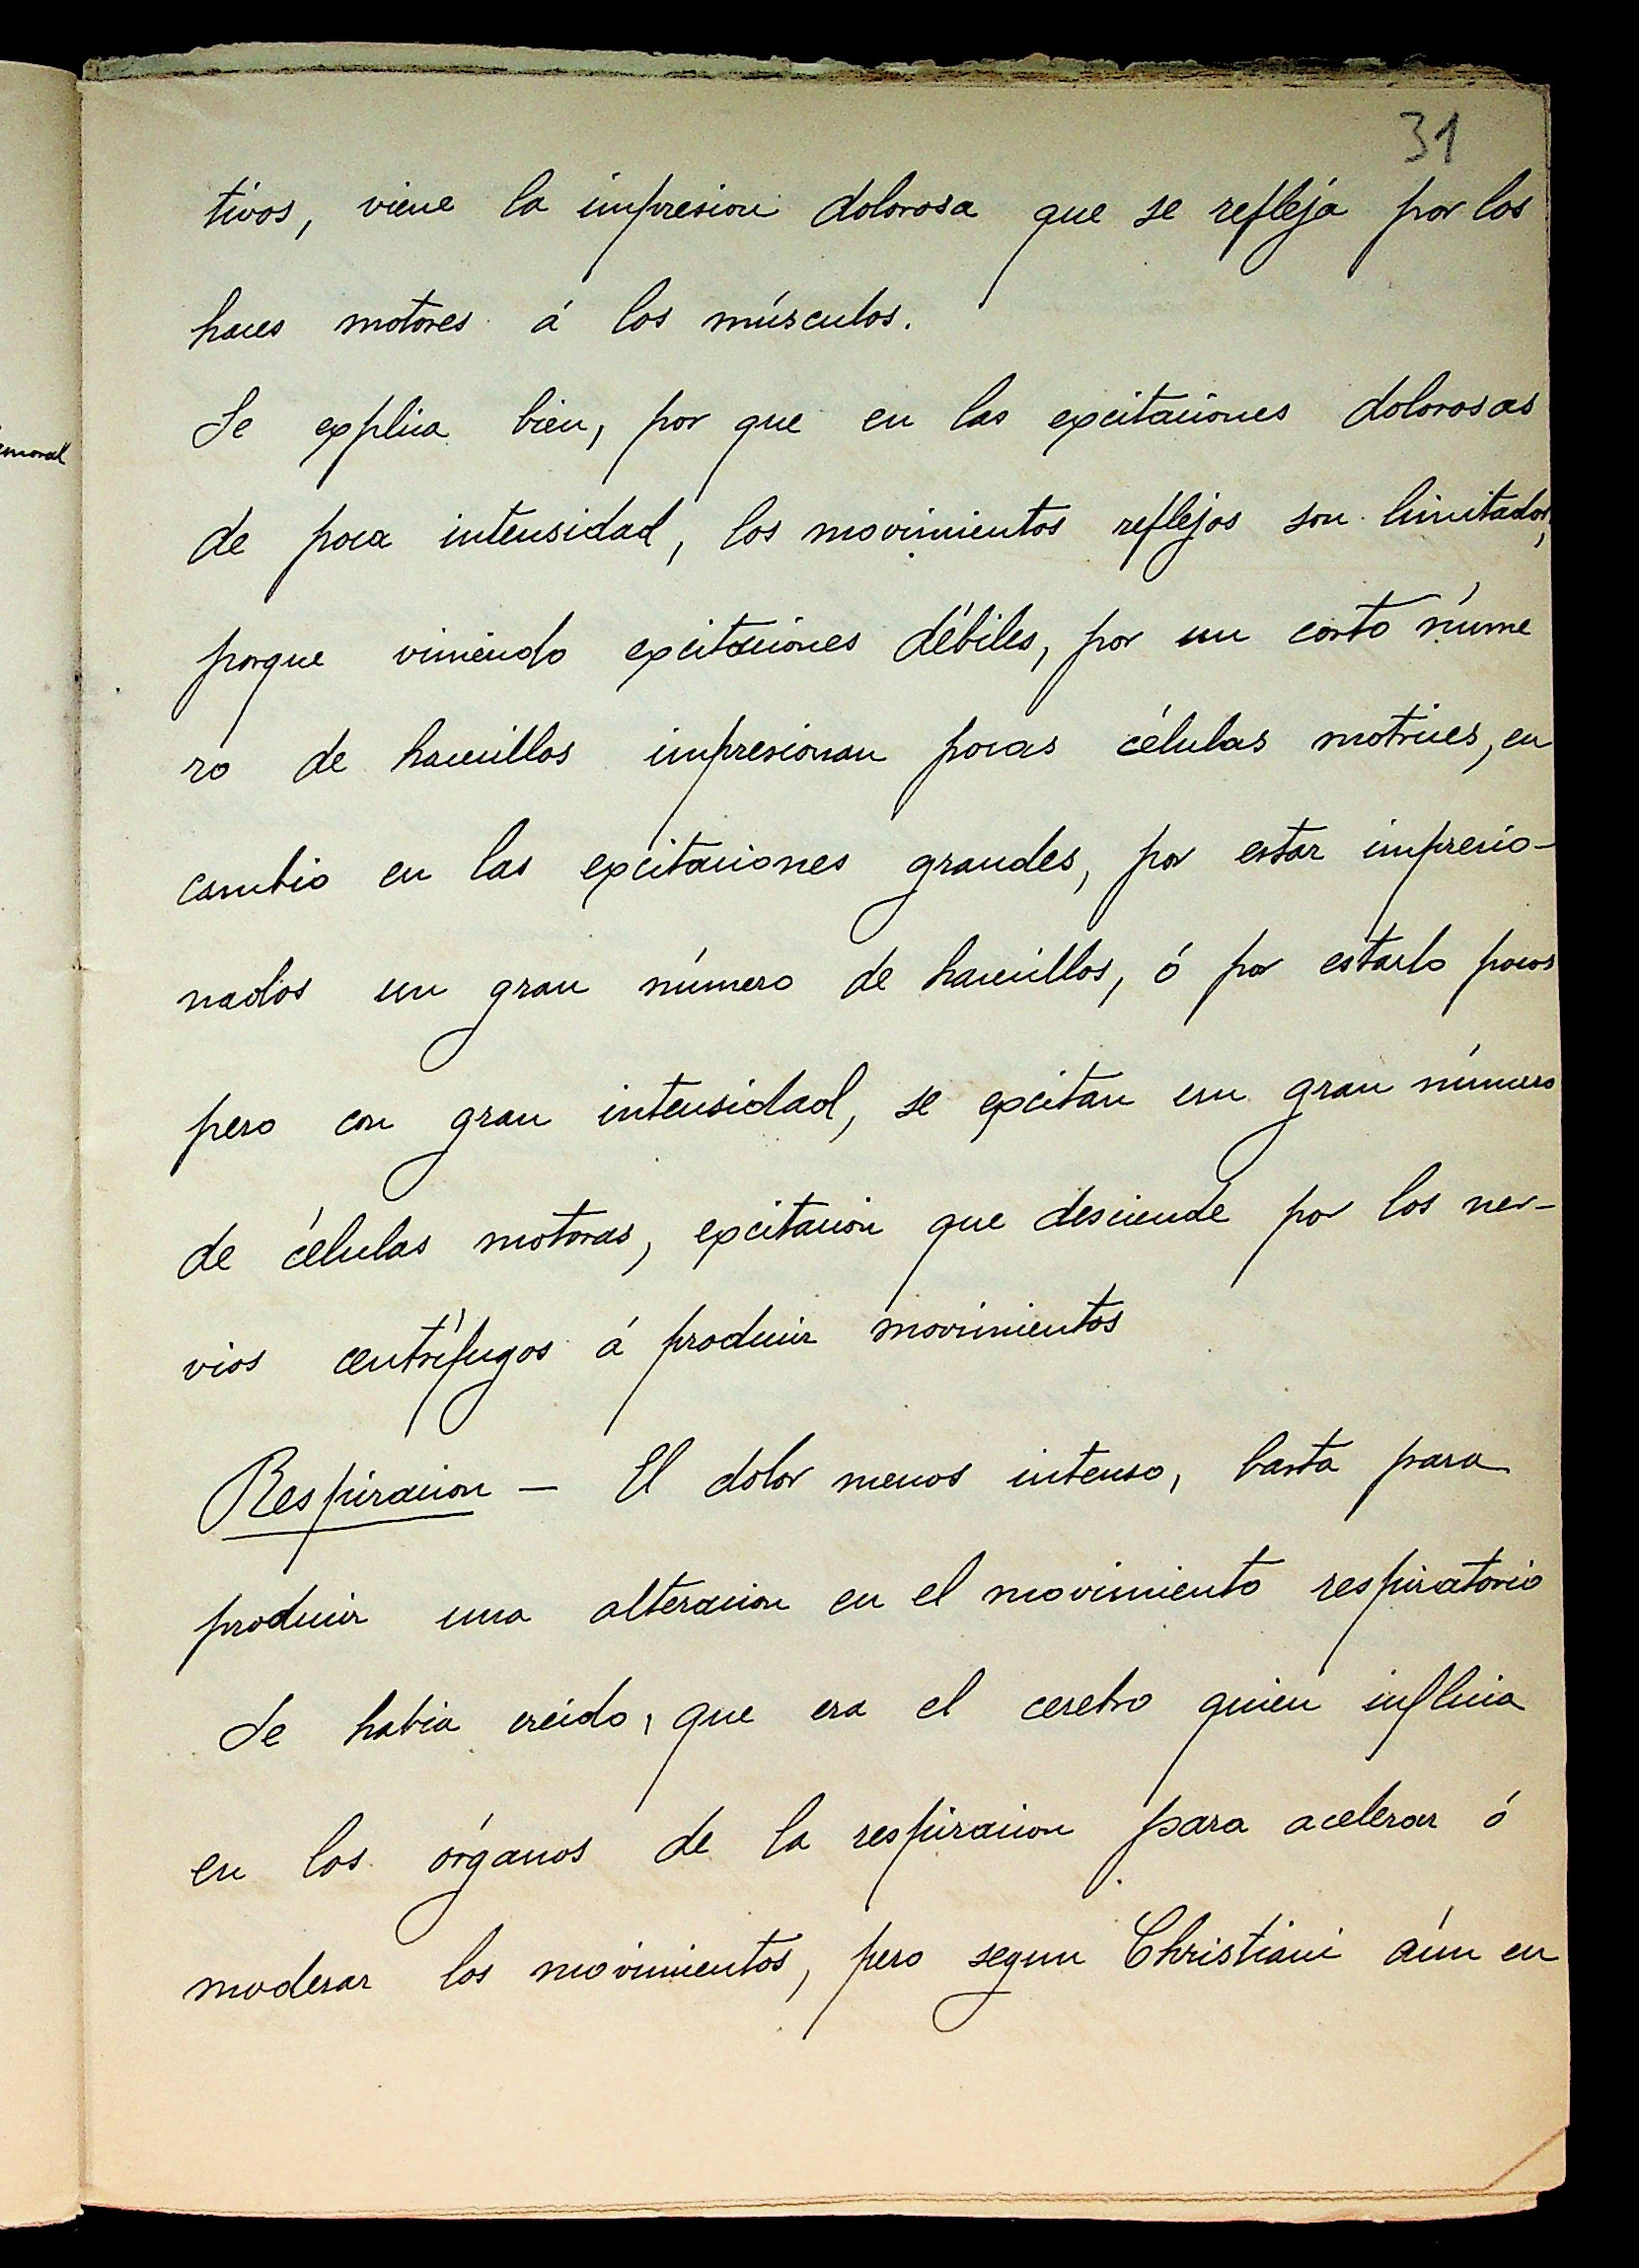 31
tivos, viene la impresion dolorosa que se refleja por los
haces motores á los músculos.
Se explica bien, por que en las excitaciones dolorosas
de poca intensidad, los movimientos reflejos son limitados,
emoral
porque viniendo excitaciones débiles, por un corto núme
ro de hacecillos impresionan pocas células motrices, en
cambio en las excitaciones grandes, por estar impresio-
nados un gran número de hacecillos, ó por estarlo pocos
pero con gran intensidad, se excitan un gran número
de células motoras, excitacion que desciende por los ner-
vios centrífugos á producir movimientos
Respiracion - El dolor menos intenso, basta para
producir una alteracion en el movimiento respiratorio
Se habia creido, que era el cerebro quien influia
en los órganos de la respiracion para acelerar ó
moderar los movimientos, pero segun Christiani aún en